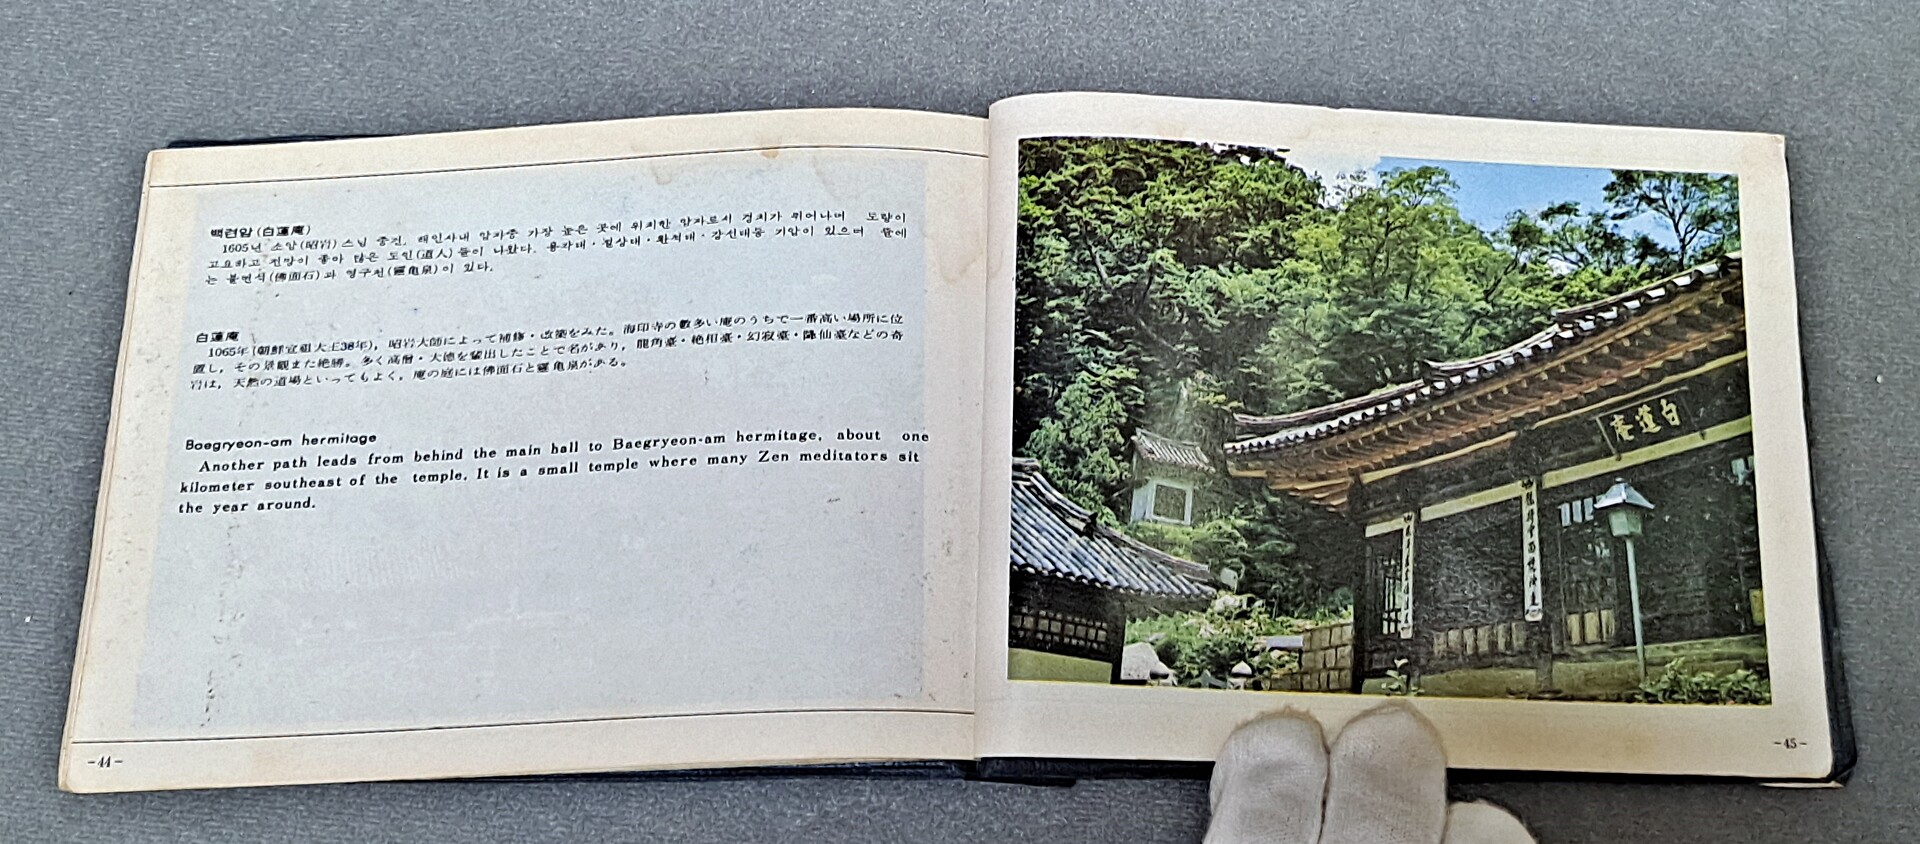 백련암 (白蓮庵)
1605년 소암(昭岩)스님 중건. 해인사내 암자중 가장 높은 곳에 위치한 암자로서 경치가 뛰어나며 도량이
고요하고 전망이 좋아 많은 도인(道人)들이 나왔다. 용각대·절상대·환적대·강선대등 기암이 있으며 뜰에
는 불면석(佛面石)과 영구천(靈亀泉)이 있다.
白蓮庵
1065年(朝鮮宣祖大王38年), 昭岩大師によって補修・改築をみた。海印寺の数多い庵のうちで一番高い場所に位
置し, その景観また絶勝。多く高僧・大徳を輩出したことで名があり, 龍角臺・絶相臺・幻寂臺・降仙臺などの奇
岩は, 天然の道場といってもよく, 庵の庭には佛面石と靈亀泉がある。
Baegryeon-am hermitage
Another path leads from behind the main hall to Baegryeon-am hermitage, about one
kilometer southeast of the temple. It is a small temple where many Zen meditators sit
the year around.
-44-
白蓮庵
-45-